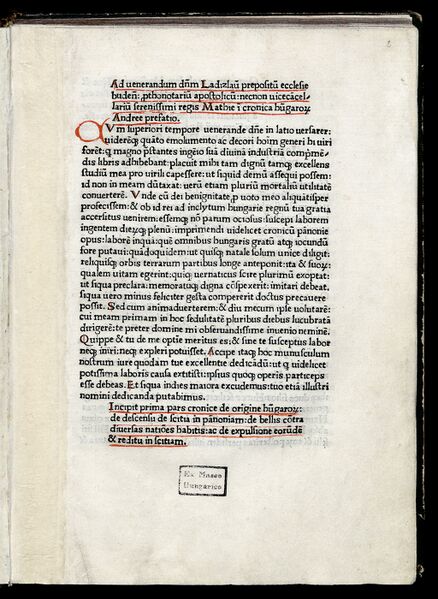 Ad uenerandum dñm Ladizlaũ prepositũ ecclesie
budeñ: ꝓthonotariũ apostolicũ: necnon uicecãcel-
lariũ serenissimi regis Mathie ĩ cronica hũgaroꝝ
Andree prefatio.
QVm superiori tempore uenerande dñe in latio uersarer:
uideréqꝫ quáto emolumento ac decori hoim generi bi uiri
foret: q magno p̃stantes ingéio súa diuina industriá comp̃mẽ-
dis libris adhibebant: placuit mihi tam dignũ tamqꝫ excellens
studiũ mea pro uirili capessere: ut siquid demũ assequi possem:
id non in meam dũtaxat: uerũ etiam pluriũ mortaliũ utilitaté
conuerteré. Vnde cũ dei benignitate, p uoto meo aliquátisper
profecissem: & ob id rei ad inclytum hungarie regnũ tua gratia
accersitus uenirem: essemqꝫ nõ parum ociosus: suscepi laborem
ingentem diuqꝫ plenũ: imprimendi uidelicet cronicũ pãnonie
opus: laboré inquá: qué omnibus hungaris gratũ atqꝫ iocundũ
fore putaui: quádoquidem: ut quisqꝫ natale solum unice diligit:
reliquisqꝫ orbis terrarum partibus longe anteponit: ita & suoꝝ
qualem uitam egerint: quiqꝫ uernaticus scire plurimũ exoptat:
ut siqua preclara: memoratuqꝫ digna cõspexerit: imitari debeat.
siqua uero minus feliciter gesta compererit doctus precauere
possit. Sed cum animaduerterem: & diu mecum ipse uolutaré:
cui meam primam in hoc sedulitaté pluribus diebus lucubratá
dirigeré: te preter domine mi obseruandissime inuenio neminé.
Quippe & tu de me optie meritus es: & sine te susceptus labor
neqꝫ iniri: neqꝫ expleri potuisset. Accipe itaqꝫ hoc munusculum
nostrum iure quodam tue excellentie dedicádũ: ut q uidelicet
potissima laboris causa extitisti: ipsius quoqꝫ operis particeps
esse debeas. Et siqua indies maiora excudemus: tuo etiá illustri
nomini dedicanda putabimus.
Incipit prima pars cronice de origine hũgaroꝝ:
de descensu de scitia in pãnoniam: de bellis cõtra
diuersas natiões habitis: ac de expulsione eorũdẽ
& reditu in scitiam.
Ex Museo
Hungarico